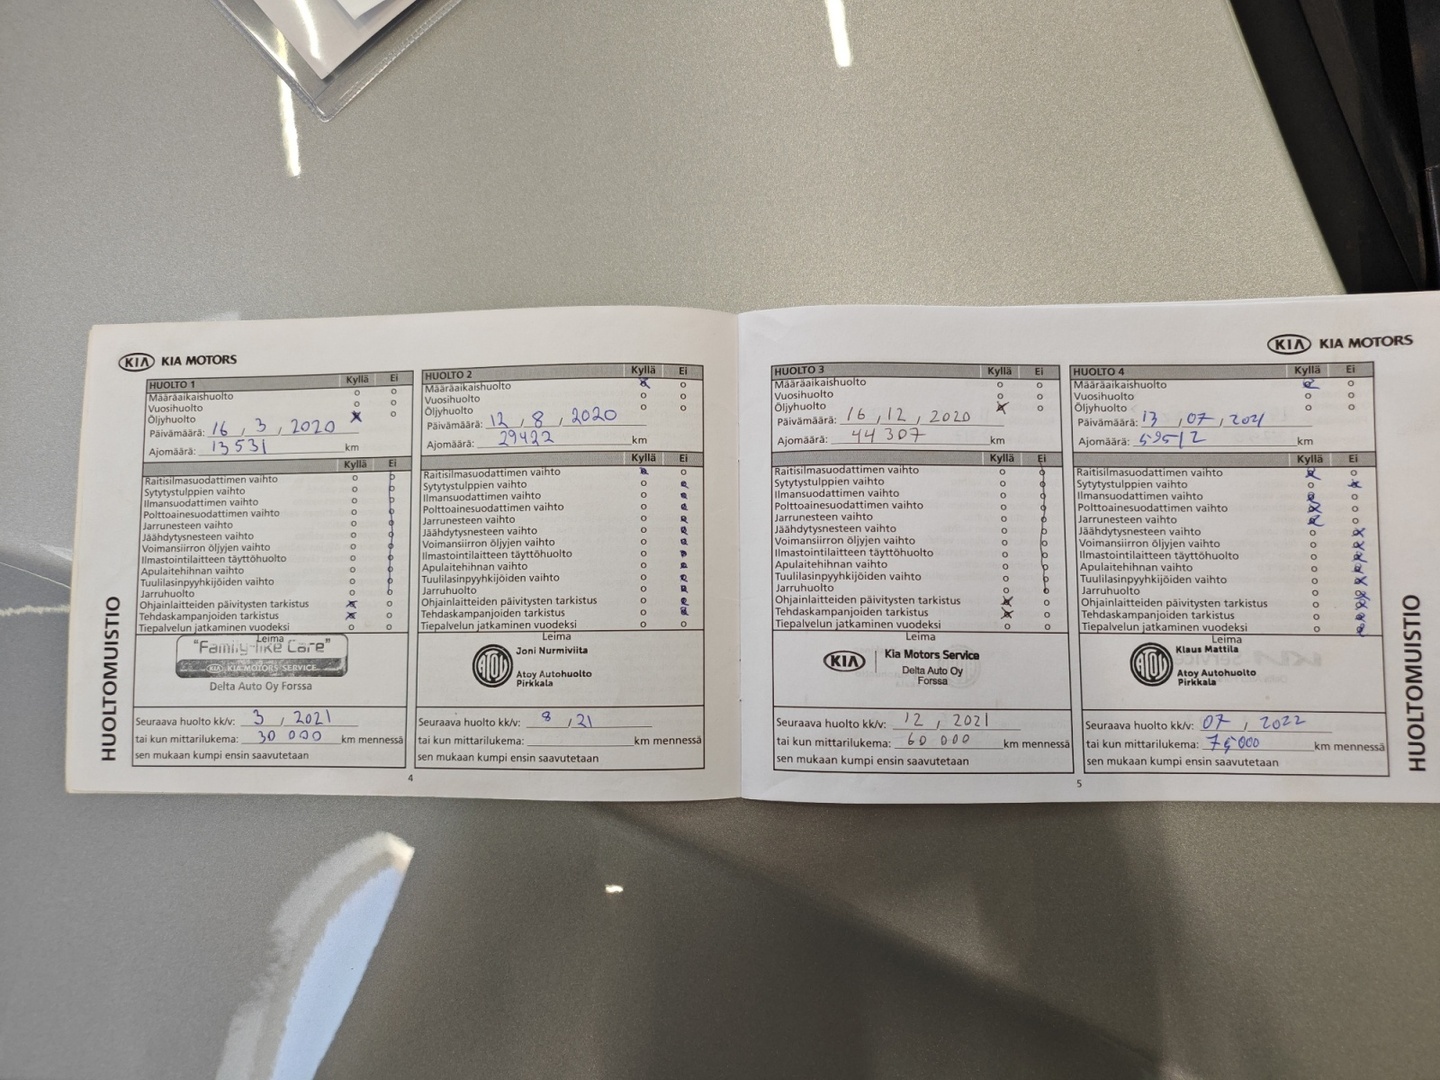 KIA KIA MOTORS
HUOLTOMUISTIO
HUOLTO 1 Kyllä Ei
Määräaikaishuolto
Vuosihuolto
Öljyhuolto
Päivämäärä: 16 , 3 , 2020
Ajomäärä: 13531 km
Kyllä Ei
Raitisilmasuodattimen vaihto
Sytytystulppien vaihto
Ilmansuodattimen vaihto
Polttoainesuodattimen vaihto
Jarrunesteen vaihto
Jäähdytysnesteen vaihto
Voimansiirron öljyjen vaihto
Ilmastointilaitteen täyttöhuolto
Apulaitehihnan vaihto
Tuulilasinpyyhkijöiden vaihto
Jarruhuolto
Ohjainlaitteiden päivitysten tarkistus
Tehdaskampanjoiden tarkistus
Tiepalvelun jatkaminen vuodeksi
Leima
"Family-like Care"
KIA MOTORS SERVICE
Delta Auto Oy Forssa
Seuraava huolto kk/v: 3 , 2021
tai kun mittarilukema: 30 000 km mennessä
sen mukaan kumpi ensin saavutetaan
HUOLTO 2 Kyllä Ei
Määräaikaishuolto
Vuosihuolto
Öljyhuolto
Päivämäärä: 12 , 8 , 2020
Ajomäärä: 29422 km
Kyllä Ei
Raitisilmasuodattimen vaihto
Sytytystulppien vaihto
Ilmansuodattimen vaihto
Polttoainesuodattimen vaihto
Jarrunesteen vaihto
Jäähdytysnesteen vaihto
Voimansiirron öljyjen vaihto
Ilmastointilaitteen täyttöhuolto
Apulaitehihnan vaihto
Tuulilasinpyyhkijöiden vaihto
Jarruhuolto
Ohjainlaitteiden päivitysten tarkistus
Tehdaskampanjoiden tarkistus
Tiepalvelun jatkaminen vuodeksi
Leima
ATOY
Joni Nurmiviita
Atoy Autohuolto
Pirkkala
Seuraava huolto kk/v: 8 , 21
tai kun mittarilukema: km mennessä
sen mukaan kumpi ensin saavutetaan
4
KIA KIA MOTORS
HUOLTO 3 Kyllä Ei
Määräaikaishuolto
Vuosihuolto
Öljyhuolto
Päivämäärä: 16 , 12 , 2020
Ajomäärä: 44 307 km
Kyllä Ei
Raitisilmasuodattimen vaihto
Sytytystulppien vaihto
Ilmansuodattimen vaihto
Polttoainesuodattimen vaihto
Jarrunesteen vaihto
Jäähdytysnesteen vaihto
Voimansiirron öljyjen vaihto
Ilmastointilaitteen täyttöhuolto
Apulaitehihnan vaihto
Tuulilasinpyyhkijöiden vaihto
Jarruhuolto
Ohjainlaitteiden päivitysten tarkistus
Tehdaskampanjoiden tarkistus
Tiepalvelun jatkaminen vuodeksi
Leima
KIA Kia Motors Service
Delta Auto Oy
Forssa
Seuraava huolto kk/v: 12 , 2021
tai kun mittarilukema: 60 000 km mennessä
sen mukaan kumpi ensin saavutetaan
HUOLTO 4 Kyllä Ei
Määräaikaishuolto
Vuosihuolto
Öljyhuolto
Päivämäärä: 13 , 07 , 2021
Ajomäärä: 59512 km
Kyllä Ei
Raitisilmasuodattimen vaihto
Sytytystulppien vaihto
Ilmansuodattimen vaihto
Polttoainesuodattimen vaihto
Jarrunesteen vaihto
Jäähdytysnesteen vaihto
Voimansiirron öljyjen vaihto
Ilmastointilaitteen täyttöhuolto
Apulaitehihnan vaihto
Tuulilasinpyyhkijöiden vaihto
Jarruhuolto
Ohjainlaitteiden päivitysten tarkistus
Tehdaskampanjoiden tarkistus
Tiepalvelun jatkaminen vuodeksi
Leima
ATOY
Klaus Mattila
Atoy Autohuolto
Pirkkala
Seuraava huolto kk/v: 07 , 2022
tai kun mittarilukema: 75000 km mennessä
sen mukaan kumpi ensin saavutetaan
5
HUOLTOMUISTIO